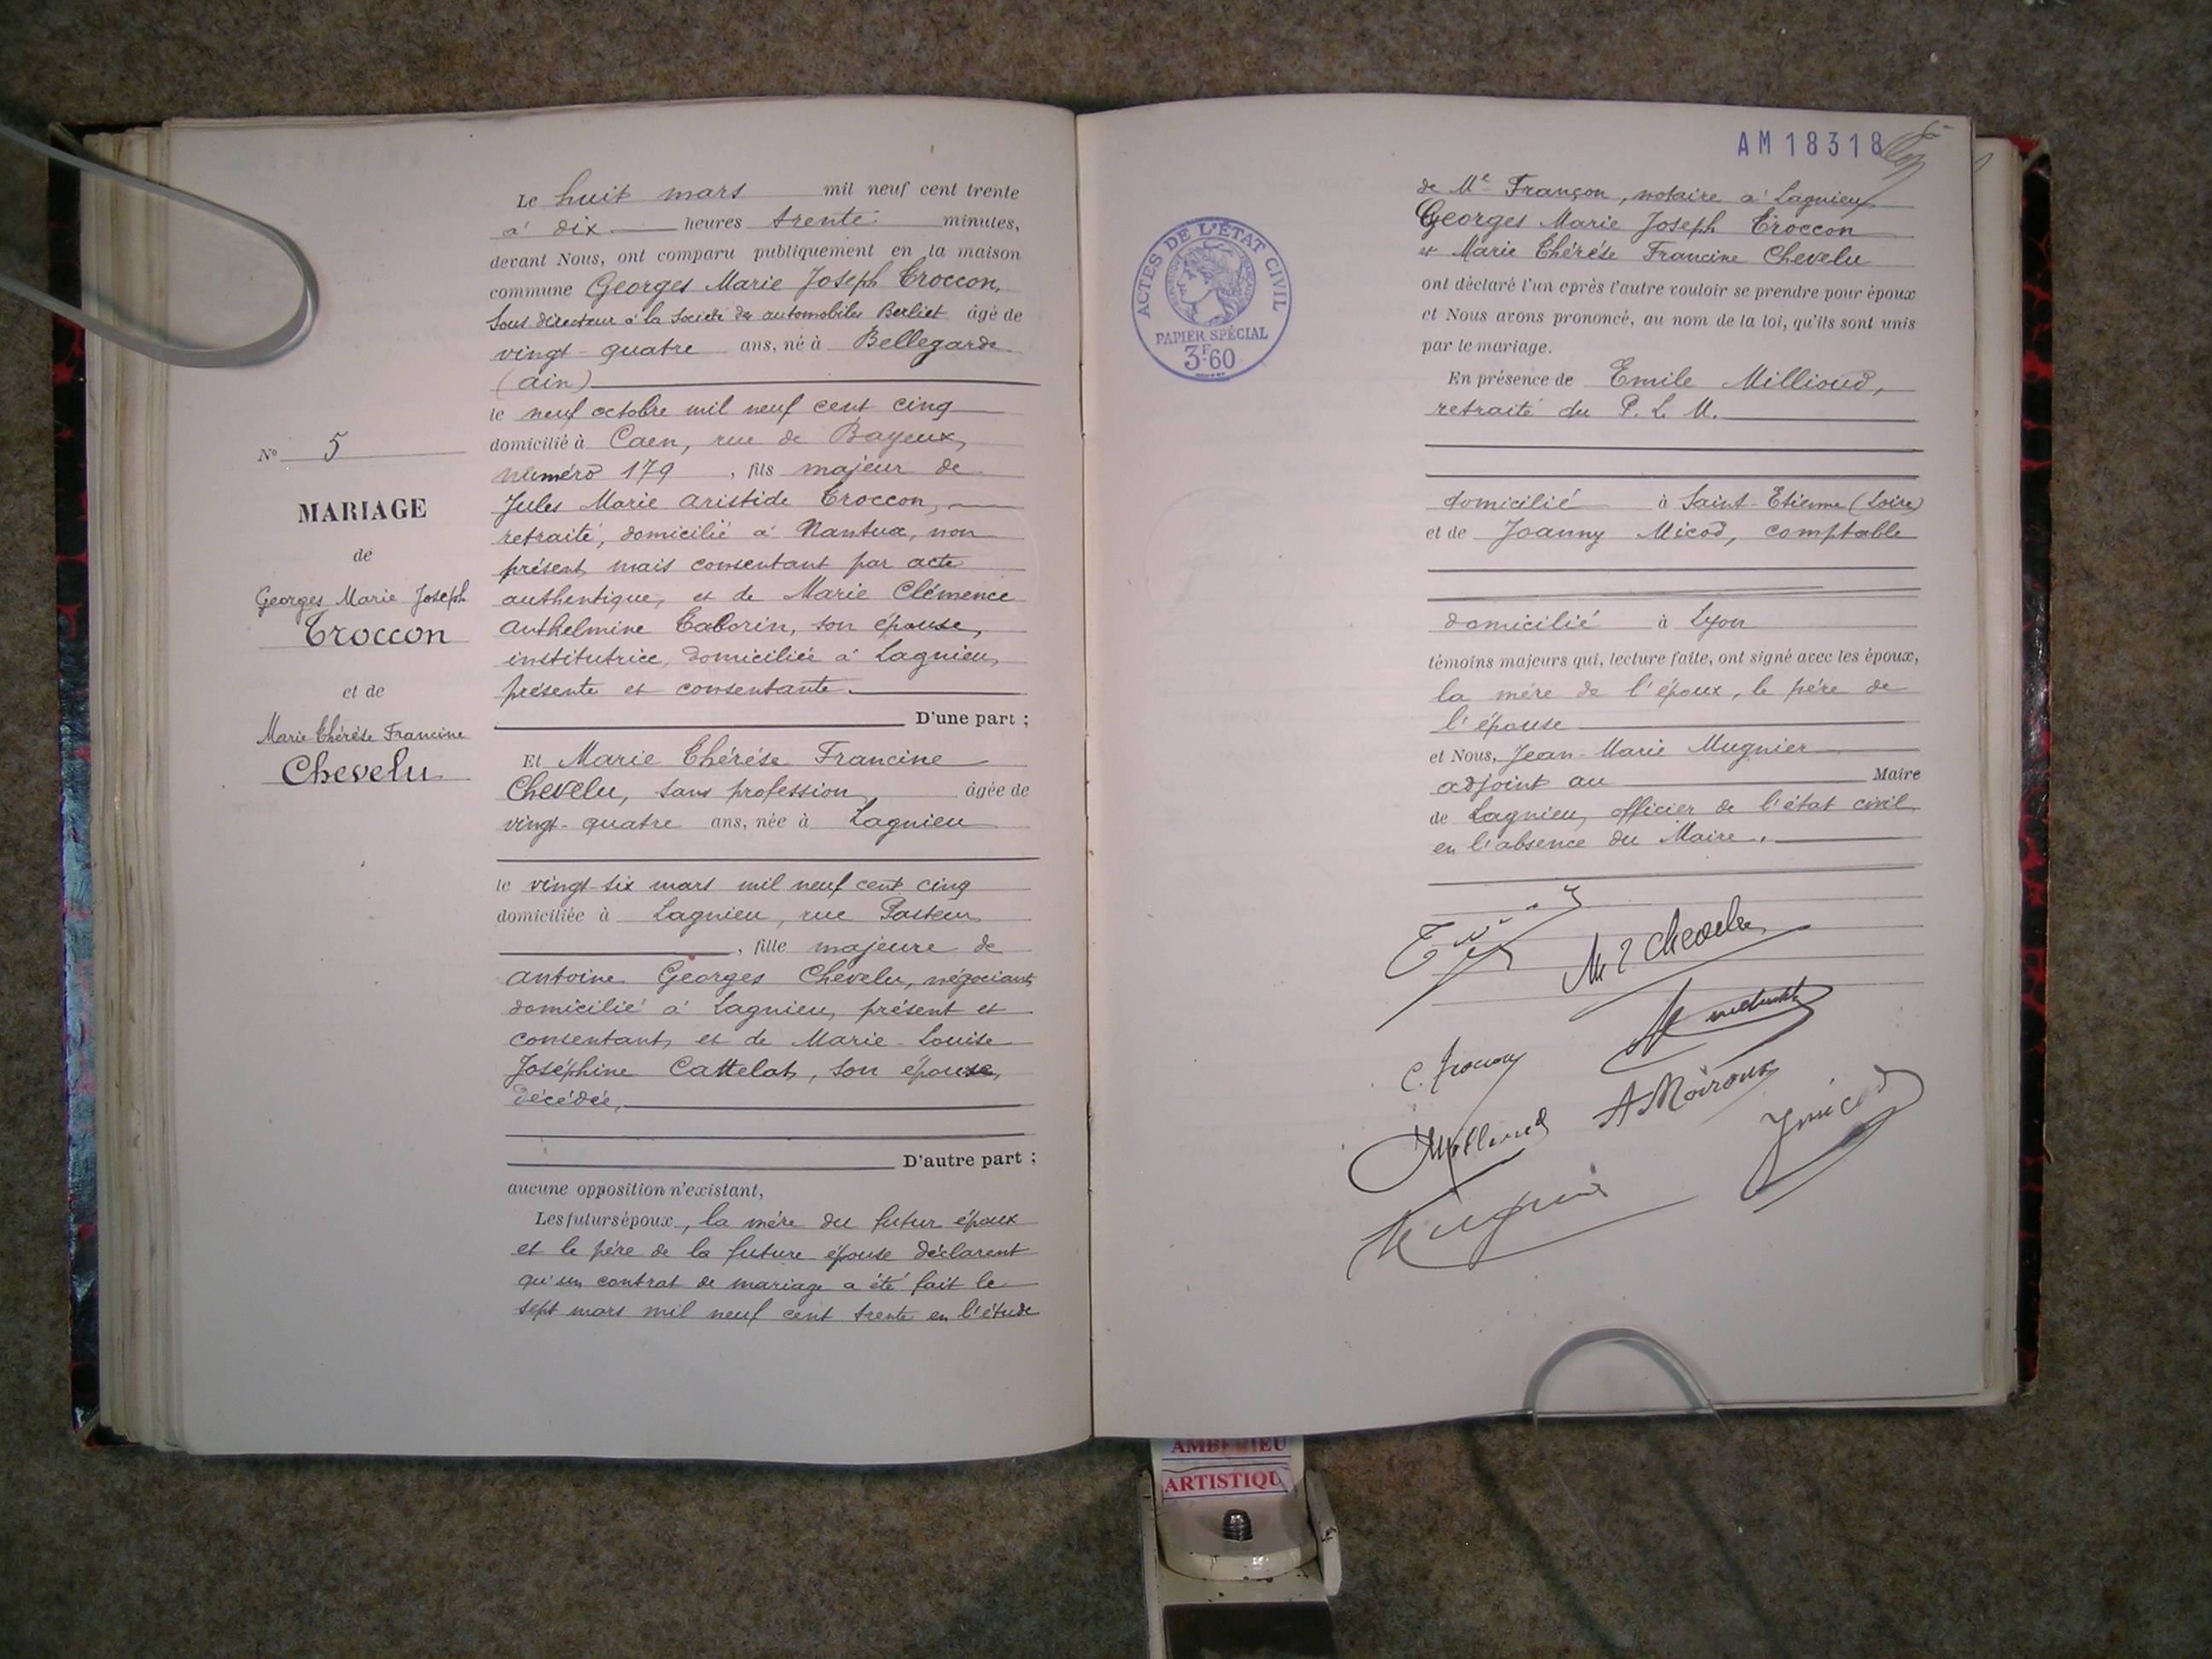 N° 5
MARIAGE
de
Georges Marie Joseph
Troccon
et de
Marie Thérèse Francine
Chevelu
Le huit mars mil neuf cent trente
à dix heures trente minutes,
devant Nous, ont comparu publiquement en la maison
commune Georges Marie Joseph Troccon,
Sous directeur à la Société des automobiles Berliet âgé de
vingt-quatre ans, né à Bellegarde
(Ain)
le neuf octobre mil neuf cent cinq
domicilié à Caen, rue de Bayeux,
numéro 179, fils majeur de
Jules Marie Aristide Troccon,
retraité, domicilié à Nantua, non
présent, mais consentant par acte
authentique, et de Marie Clémence
Anthelmine Taborin, son épouse,
institutrice, domiciliée à Lagnieu,
présente et consentante.
D'une part ;
Et Marie Thérèse Francine
Chevelu, sans profession, âgée de
vingt-quatre ans, née à Lagnieu
le vingt-six mars mil neuf cent cinq
domiciliée à Lagnieu, rue Pasteur
, fille majeure de
Antoine Georges Chevelu, négociant,
domicilié à Lagnieu, présent et
consentant, et de Marie-Louise
Joséphine Cattelat, son épouse,
décédée,
D'autre part ;
aucune opposition n'existant,
Les futurs époux, la mère du futur époux
et le père de la future épouse déclarent
qu'un contrat de mariage a été fait le
sept mars mil neuf cent trente en l'étude
AM 18318
ACTES DE L'ÉTAT CIVIL
PAPIER SPÉCIAL
3F60
de Me Françon, notaire à Lagnieu
Georges Marie Joseph Troccon
et Marie Thérèse Francine Chevelu
ont déclaré l'un après l'autre vouloir se prendre pour époux
et Nous avons prononcé, au nom de la loi, qu'ils sont unis
par le mariage.
En présence de Emile Millioud,
retraité du P. L. M.
domicilié à Saint-Etienne (Loire)
et de Joanny Micod, comptable
domicilié à Lyon
témoins majeurs qui, lecture faite, ont signé avec les époux,
la mère de l'époux, le père de
l'épouse
et Nous, Jean-Marie Mugnier
adjoint au Maire
de Lagnieu, officier de l'état civil
en l'absence du Maire.
M T Chevelu
C. Troccon
A Moiroux
Millioud
J Micod
Mugnier
AMBERIEU
ARTISTIQU